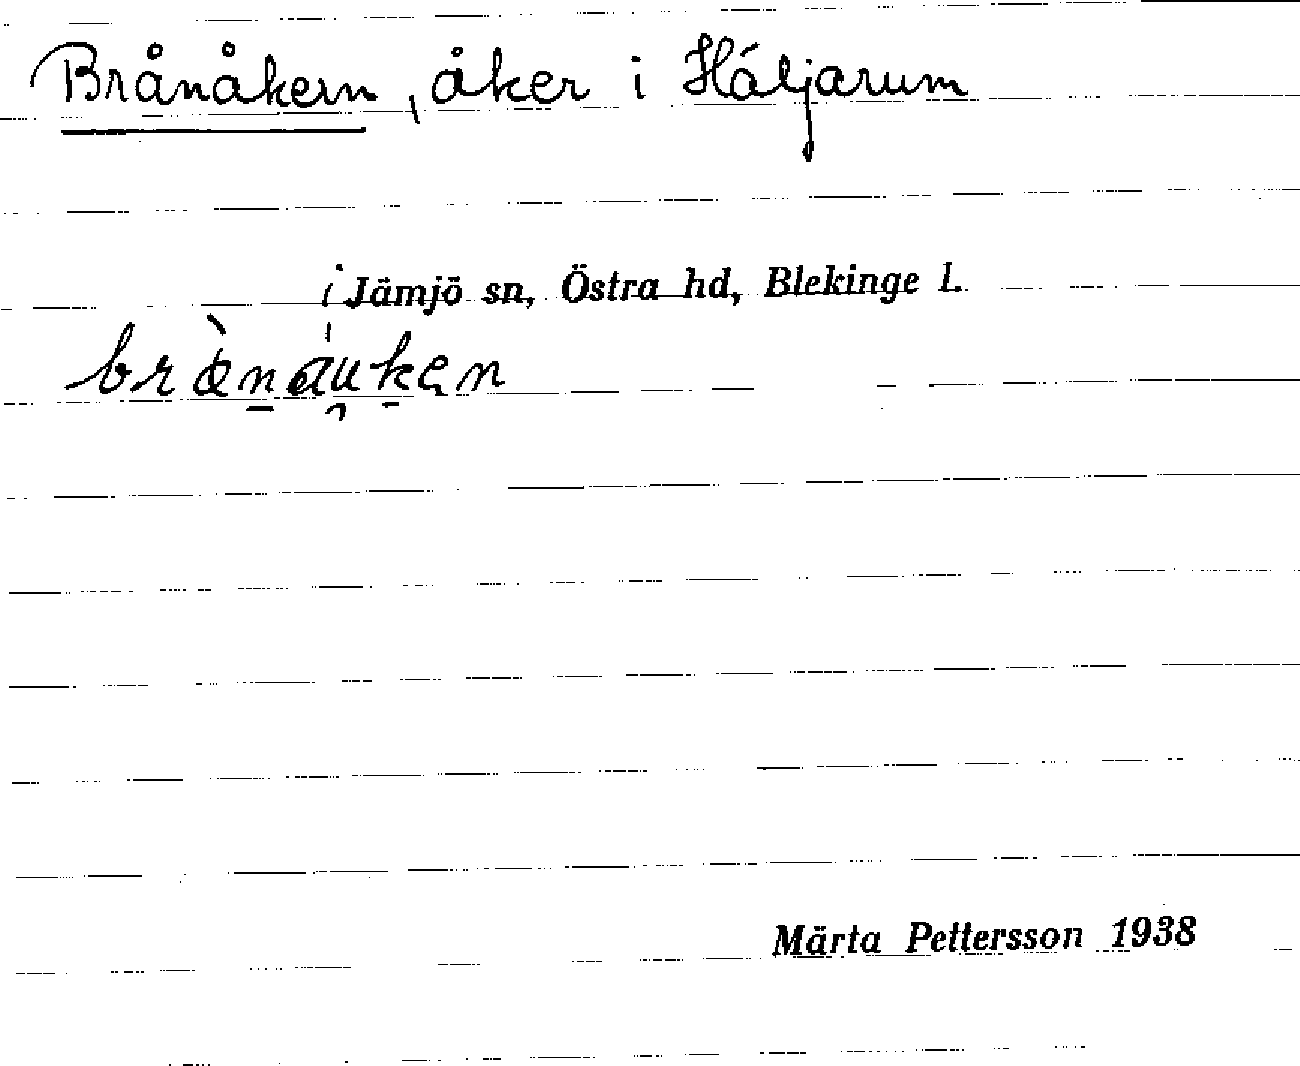 Brånåkern, åker i Häljarum
i Jämjö sn, Östra hd, Blekinge l.
brànáuken
Märta Pettersson 1938